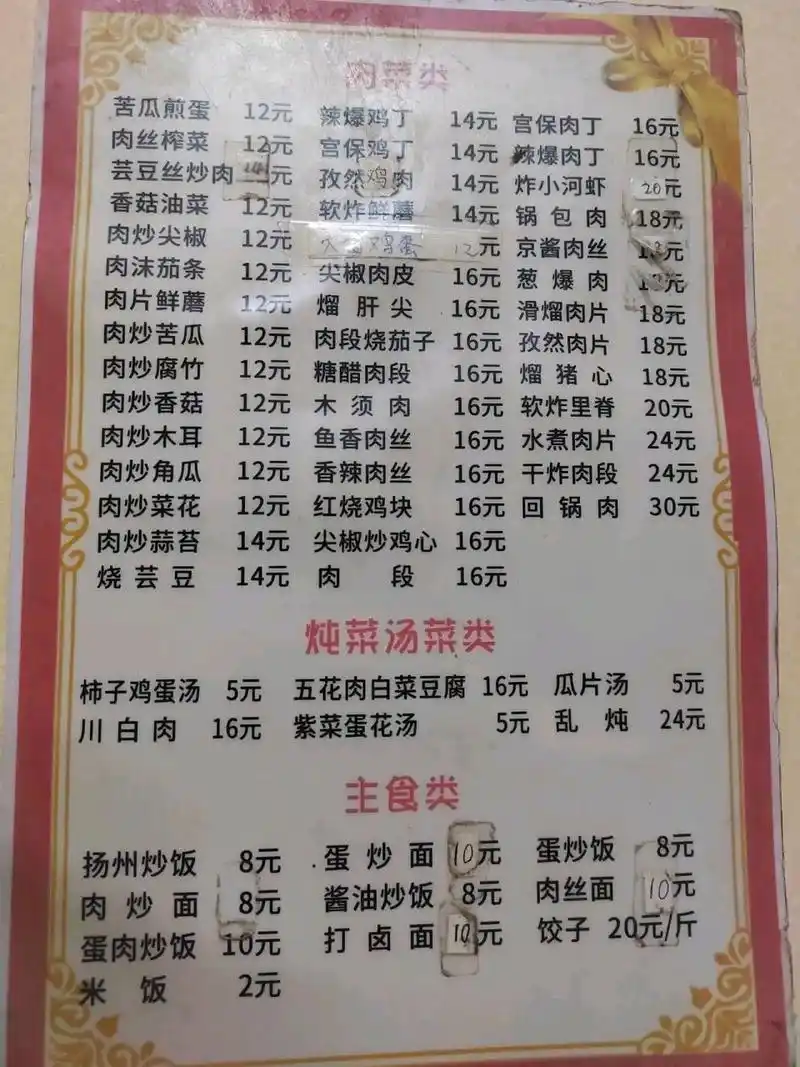 肉菜类
苦瓜煎蛋 12元 辣爆鸡丁 14元 宫保肉丁 16元
肉丝榨菜 12元 宫保鸡丁 14元 辣爆肉丁 16元
芸豆丝炒肉 元 孜然鸡肉 14元 炸小河虾 20元
香菇油菜 12元 软炸鲜蘑 14元 锅包肉 18元
肉炒尖椒 12元 鸡蛋 12元 京酱肉丝 元
肉沫茄条 12元 尖椒肉皮 16元 葱爆肉 元
肉片鲜蘑 12元 熘肝尖 16元 滑熘肉片 18元
肉炒苦瓜 12元 肉段烧茄子 16元 孜然肉片 18元
肉炒腐竹 12元 糖醋肉段 16元 熘猪心 18元
肉炒香菇 12元 木须肉 16元 软炸里脊 20元
肉炒木耳 12元 鱼香肉丝 16元 水煮肉片 24元
肉炒角瓜 12元 香辣肉丝 16元 干炸肉段 24元
肉炒菜花 12元 红烧鸡块 16元 回锅肉 30元
肉炒蒜苔 14元 尖椒炒鸡心 16元
烧芸豆 14元 肉段 16元
炖菜汤菜类
柿子鸡蛋汤 5元 五花肉白菜豆腐 16元 瓜片汤 5元
川白肉 16元 紫菜蛋花汤 5元 乱炖 24元
主食类
扬州炒饭 8元 蛋炒面 10元 蛋炒饭 8元
肉炒面 8元 酱油炒饭 8元 肉丝面 10元
蛋肉炒饭 10元 打卤面 10元 饺子 20元/斤
米饭 2元